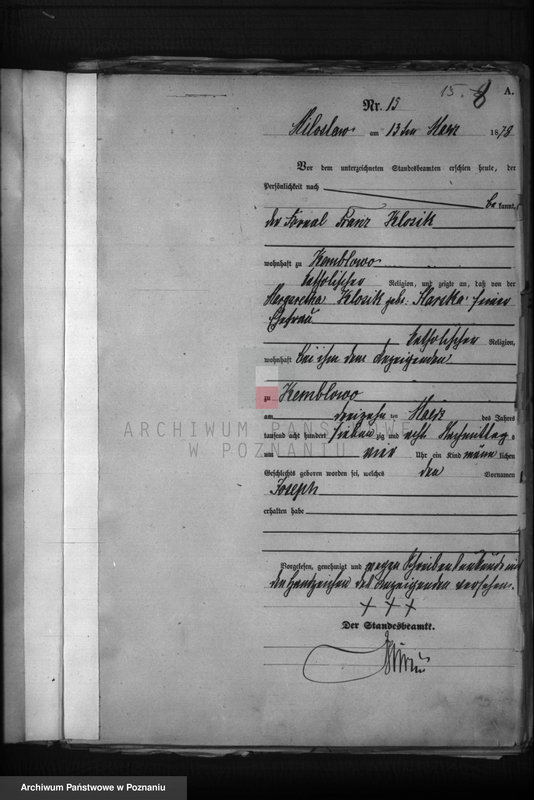 15. 8 A.
Nr. 15
Miloslaw am 13ten März 1878
Vor dem unterzeichneten Standesbeamten erschien heute, der
Persönlichkeit nach
be kannt,
der Fornal Franz Klosik
wohnhaft zu Kemblowo
katholischer Religion, und zeigte an, daß von der
Margaretha Klosik geb: seiner
Ehefrau
katholischer Religion,
wohnhaft bei ihm dem Anzeigenden
zu Kemblowo
am dreizehn ten März des Jahres
ARCHIWUM PAŃSTWOWE
tausend acht hundert sieben zig und acht Nachmittag s
W POZNANIU
um vier Uhr ein Kind männ lichen
Geschlechts geboren worden sei, welches den Vornamen
Joseph
erhalten habe
Vorgelesen, genehmigt und wegen Schreibensunkunde mit
den Handzeichen des Anzeigenden versehen.
+ + +
Der Standesbeamte.
Archiwum Państwowe w Poznaniu